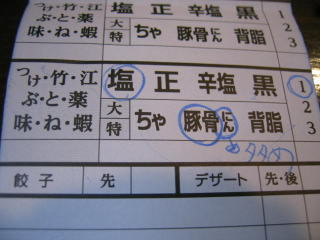 つけ・竹・江 塩 正 辛塩 黒 1
ぶ・と・薬 大 2
味・ね・蝦 特 ちゃ 豚骨 にん 背脂 3
つけ・竹・江 塩 正 辛塩 黒 1
ぶ・と・薬 大 2
味・ね・蝦 特 ちゃ 豚骨 にん 背脂 3
餃子 先 デザート 先・後